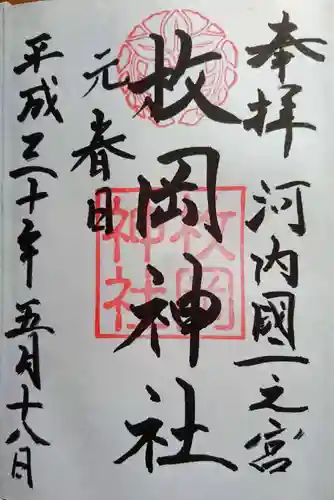 奉拝 河内國一之宮
枚岡神社
枚岡
神社
元春日
平成三十年五月十八日